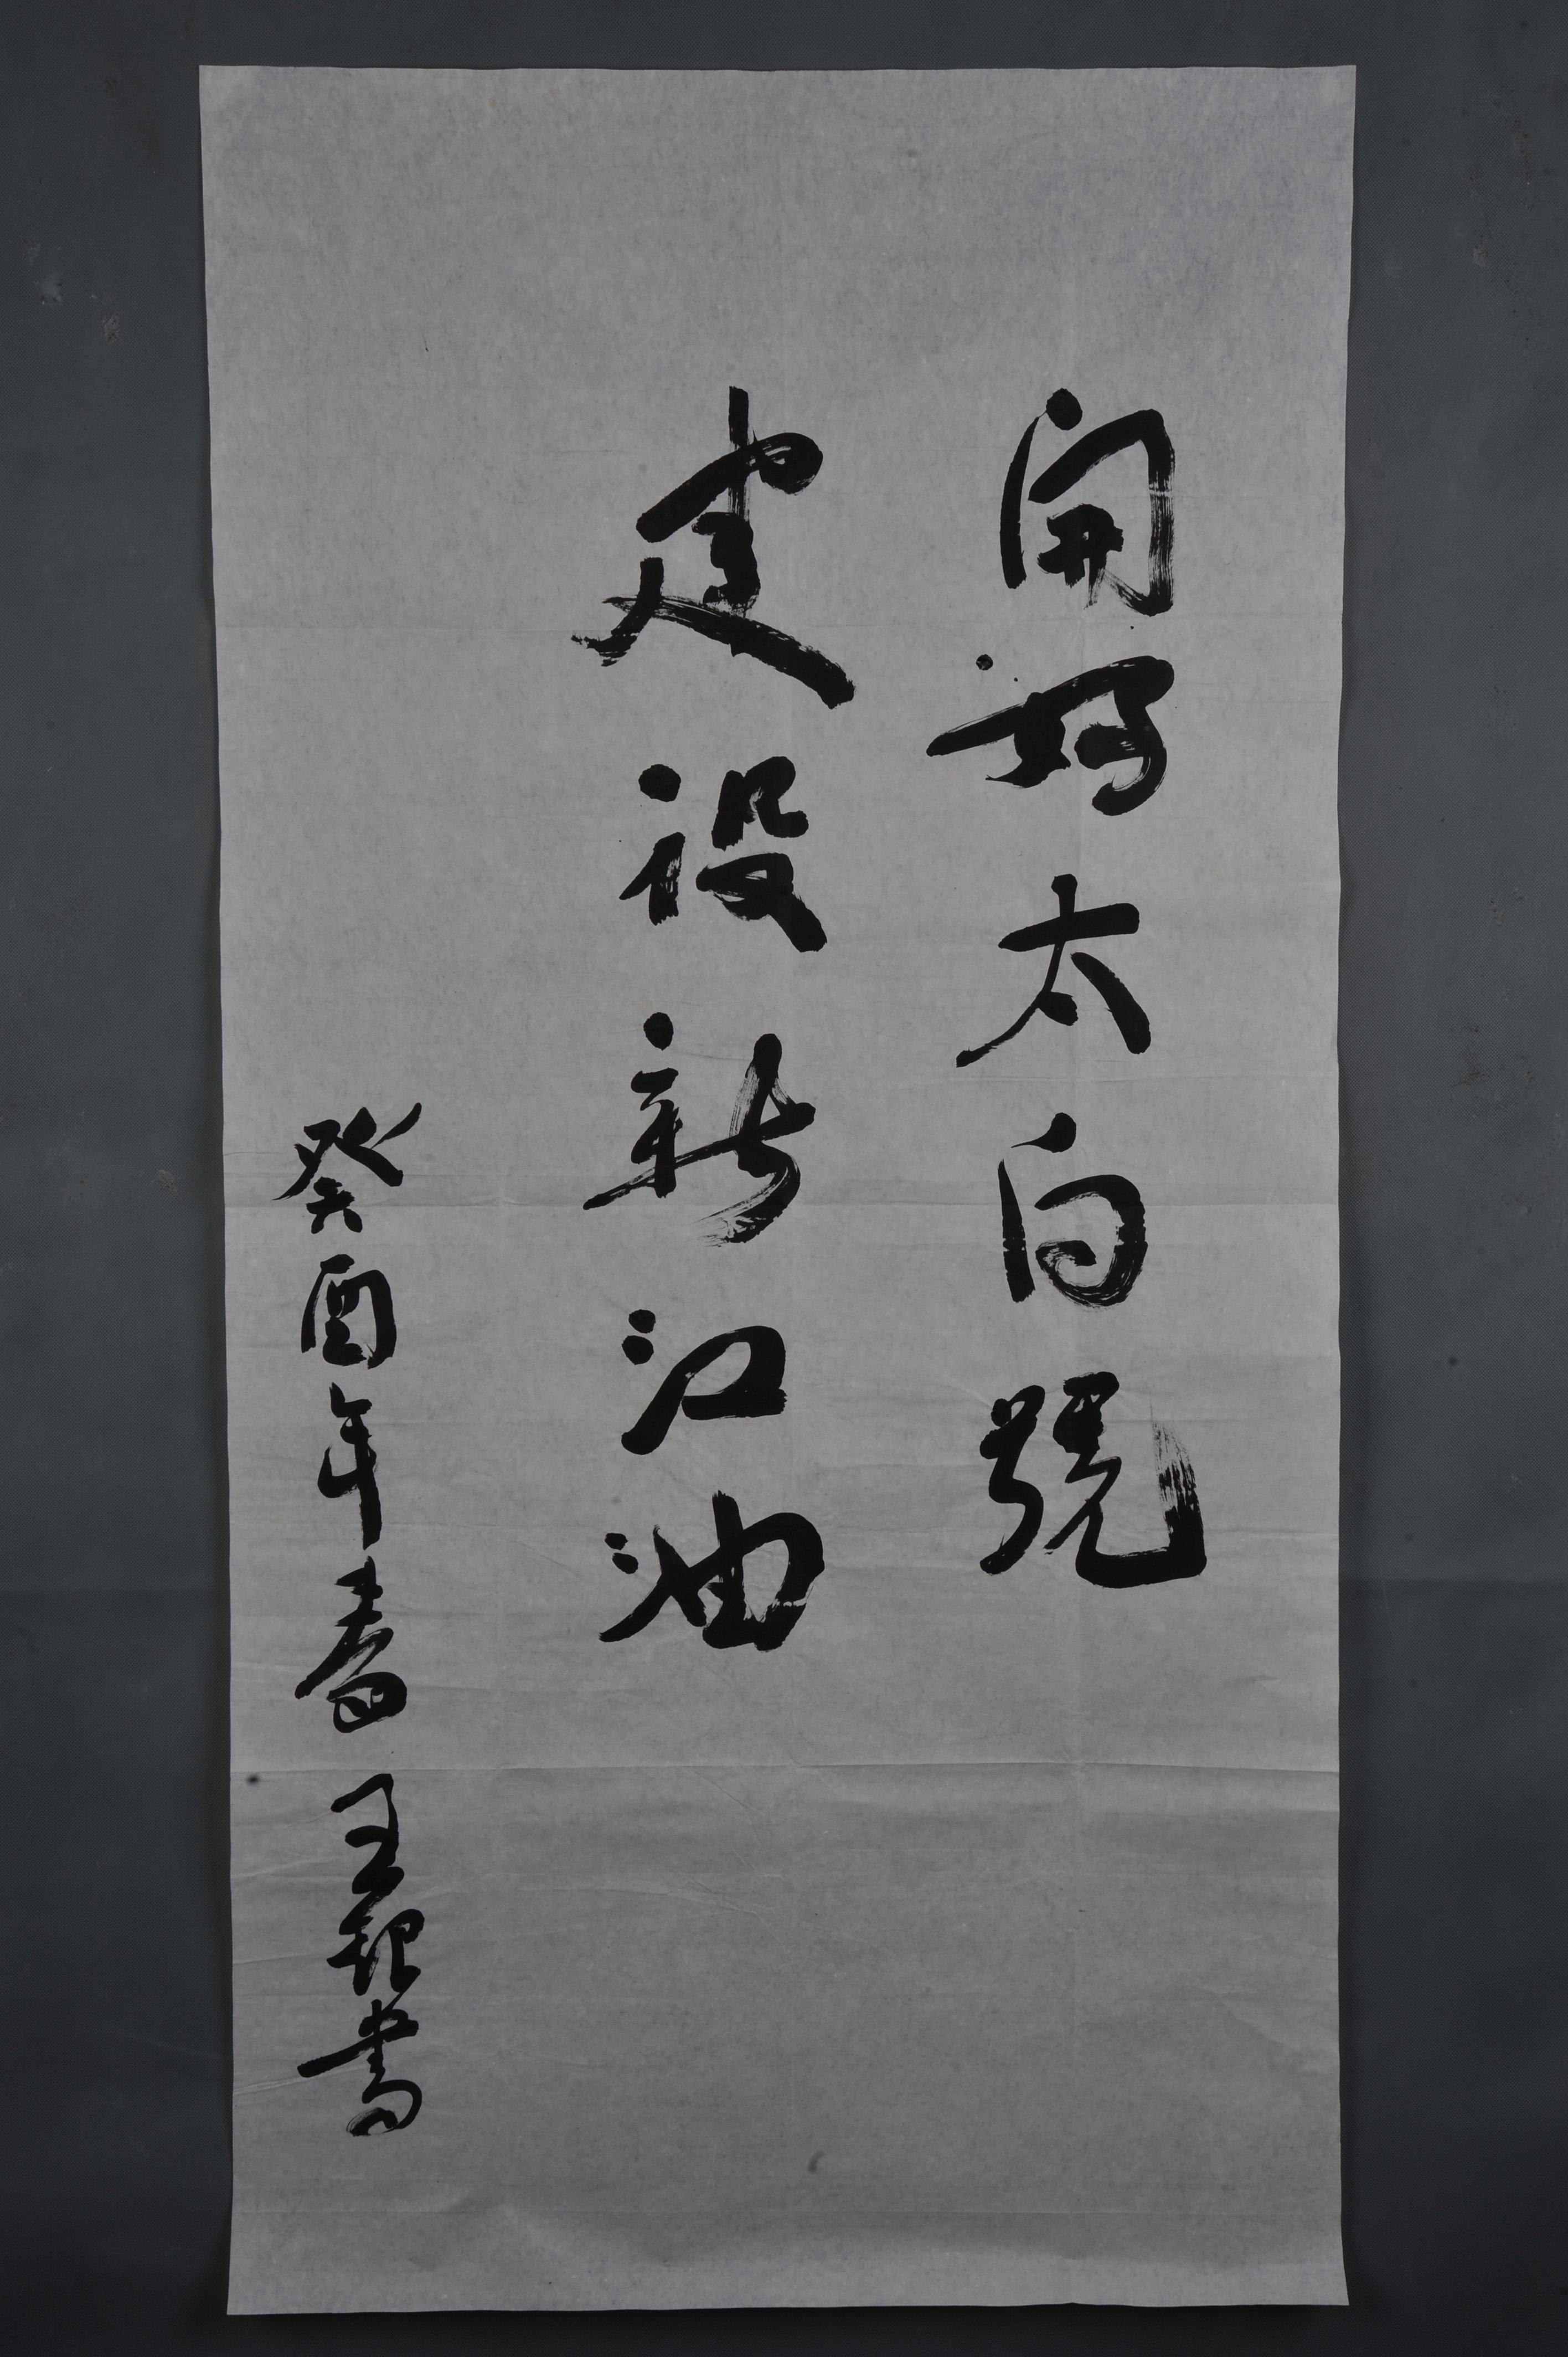 開好太白號
建设新江油
癸酉年春 王琨書